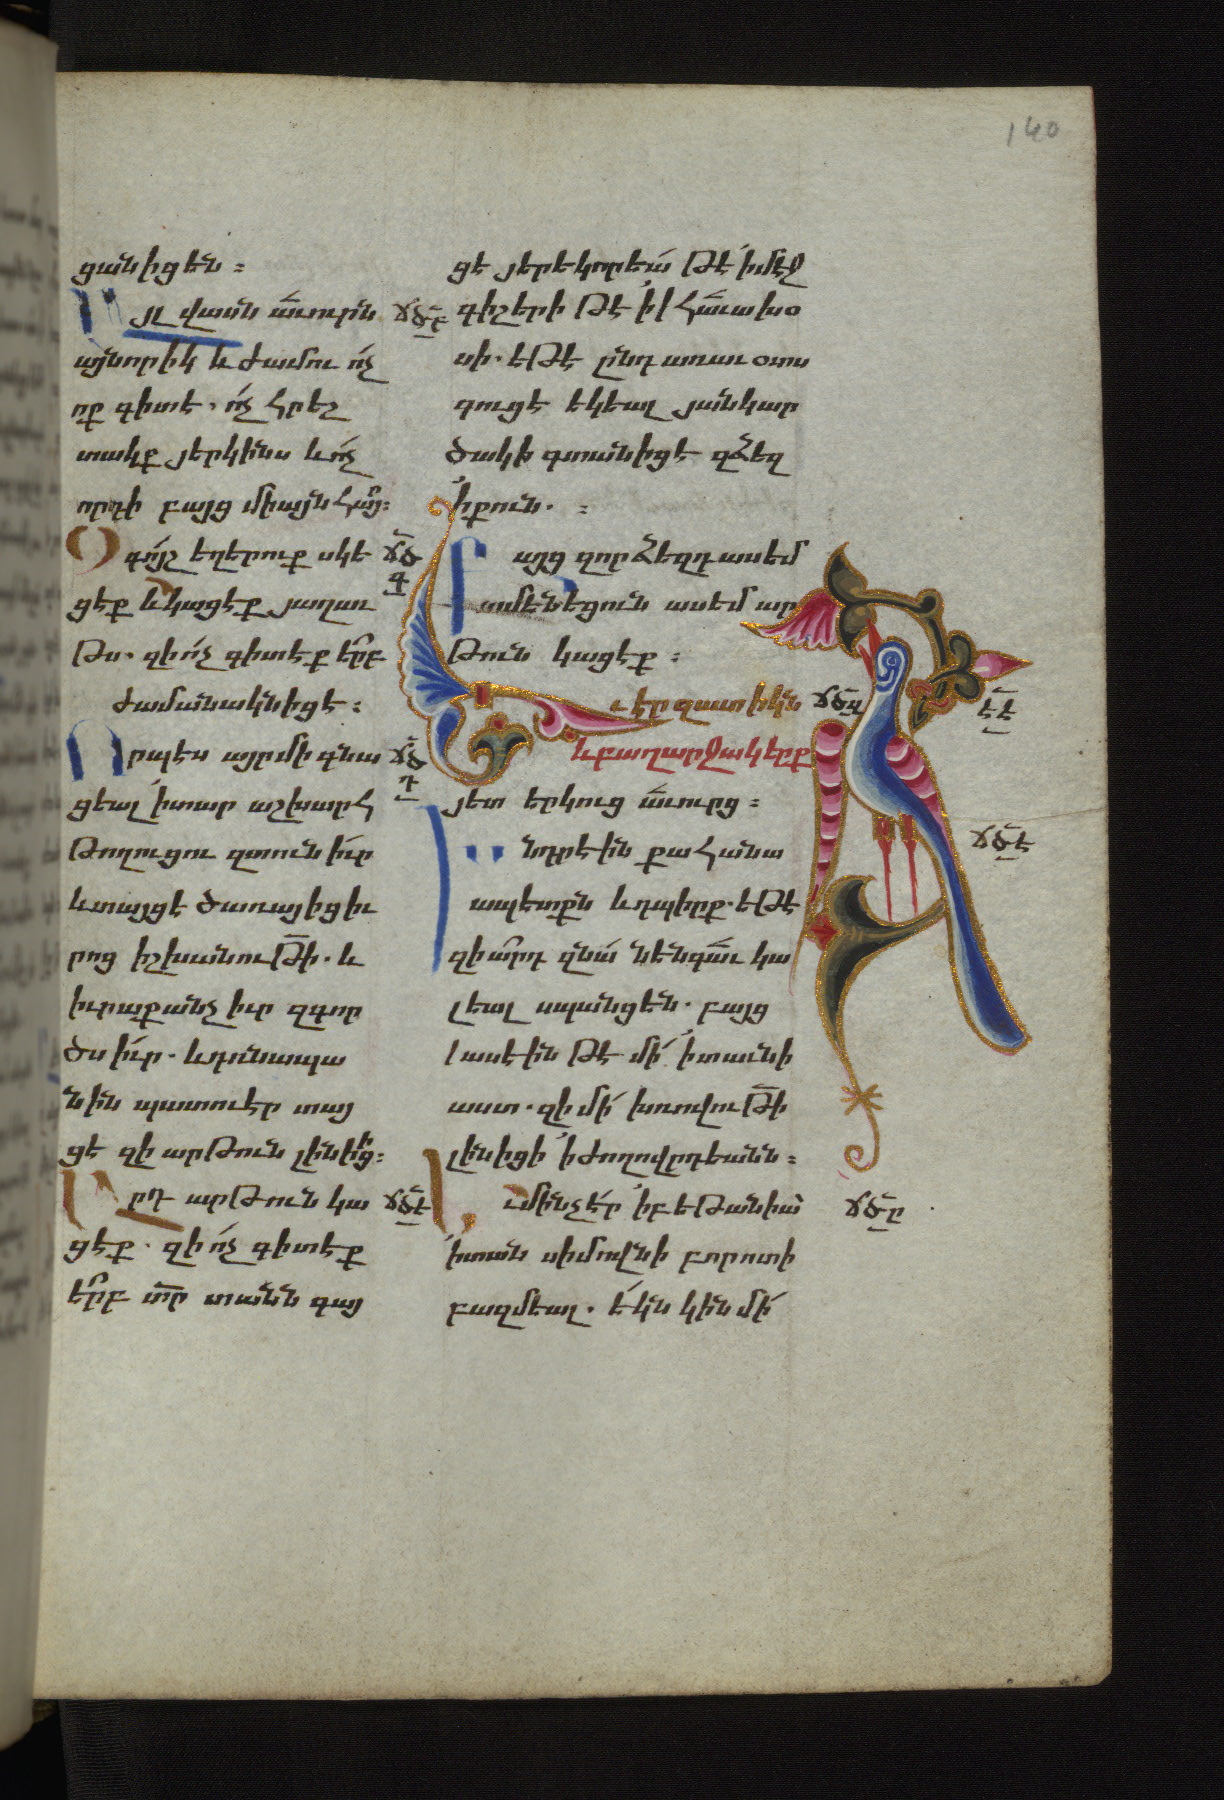 140
ցանիցեն ։
Այլ վասն ա̅ւուրն ՃԾԲ
այնորիկ և ժամու ո՛չ
ոք գիտէ . ո՛չ հրեշ
տակք յերկինս և ո՛չ
որդի բայց միայն հա՟յր ։
Զգո՛յշ եղերուք սկե ՃԾԳ
ցէք և կացէք յաղաւ
թս . զի ո՛չ գիտէք ե՟րբ
ժամանակն իցէ ։
Որպէս այր մի գնա ՃԾԴ
ցեալ ՚ի տար աշխարհ
թողուցու զտուն ի՛ւր
և տայցէ ծառայից իւ
րոց իշխանութի̅ . և
իւրաքանչիւր զգոր
ծս ի՛ւր . և դռնապա
նին պատուէր տայ
ցէ զի արթուն լինիցի ։
Արդ արթուն կա ՃԾԵ
ցէք . զի ո՛չ գիտէք
ե՟րբ տ̅ր տանն գայ
ցէ յերեկորեա՛ թէ ՚ի մէջ
գիշերի թէ ՚ի հա̅ւախօ
սի . եթէ ընդ առաւօտս
գուցէ եկեալ յանկար
ծակի գտանիցէ զձեզ
՚ի քուն . ։
Բայց զոր ձեզդ ասեմ
ամենեցուն ասեմ ար
թուն կացէք ։
Եւ էր զատիկն ՃԾԶ
և բաղարջակերք ԷԷ
յետ երկուց ա̅ւուրց ։
Խնդրէին քահանա ՃԾԷ
ապետքն և դպիրք . եթէ
զի ա՟րդ զնա՛ նենգա̅ւ կա
լեալ սպանցեն . բայց
ասէին թէ մի՛ ՚ի տաւնի
աստ . զի մի՛ խռովութի̅
լինիցի ՚ի ժողովրդեանն ։
Եւ մինչ է՛ր ՚ի բեթանիա՛ ՃԾԸ
՚ի տան սիմովնի բորոտի
բազմեալ . ե՛կն կին մի՛